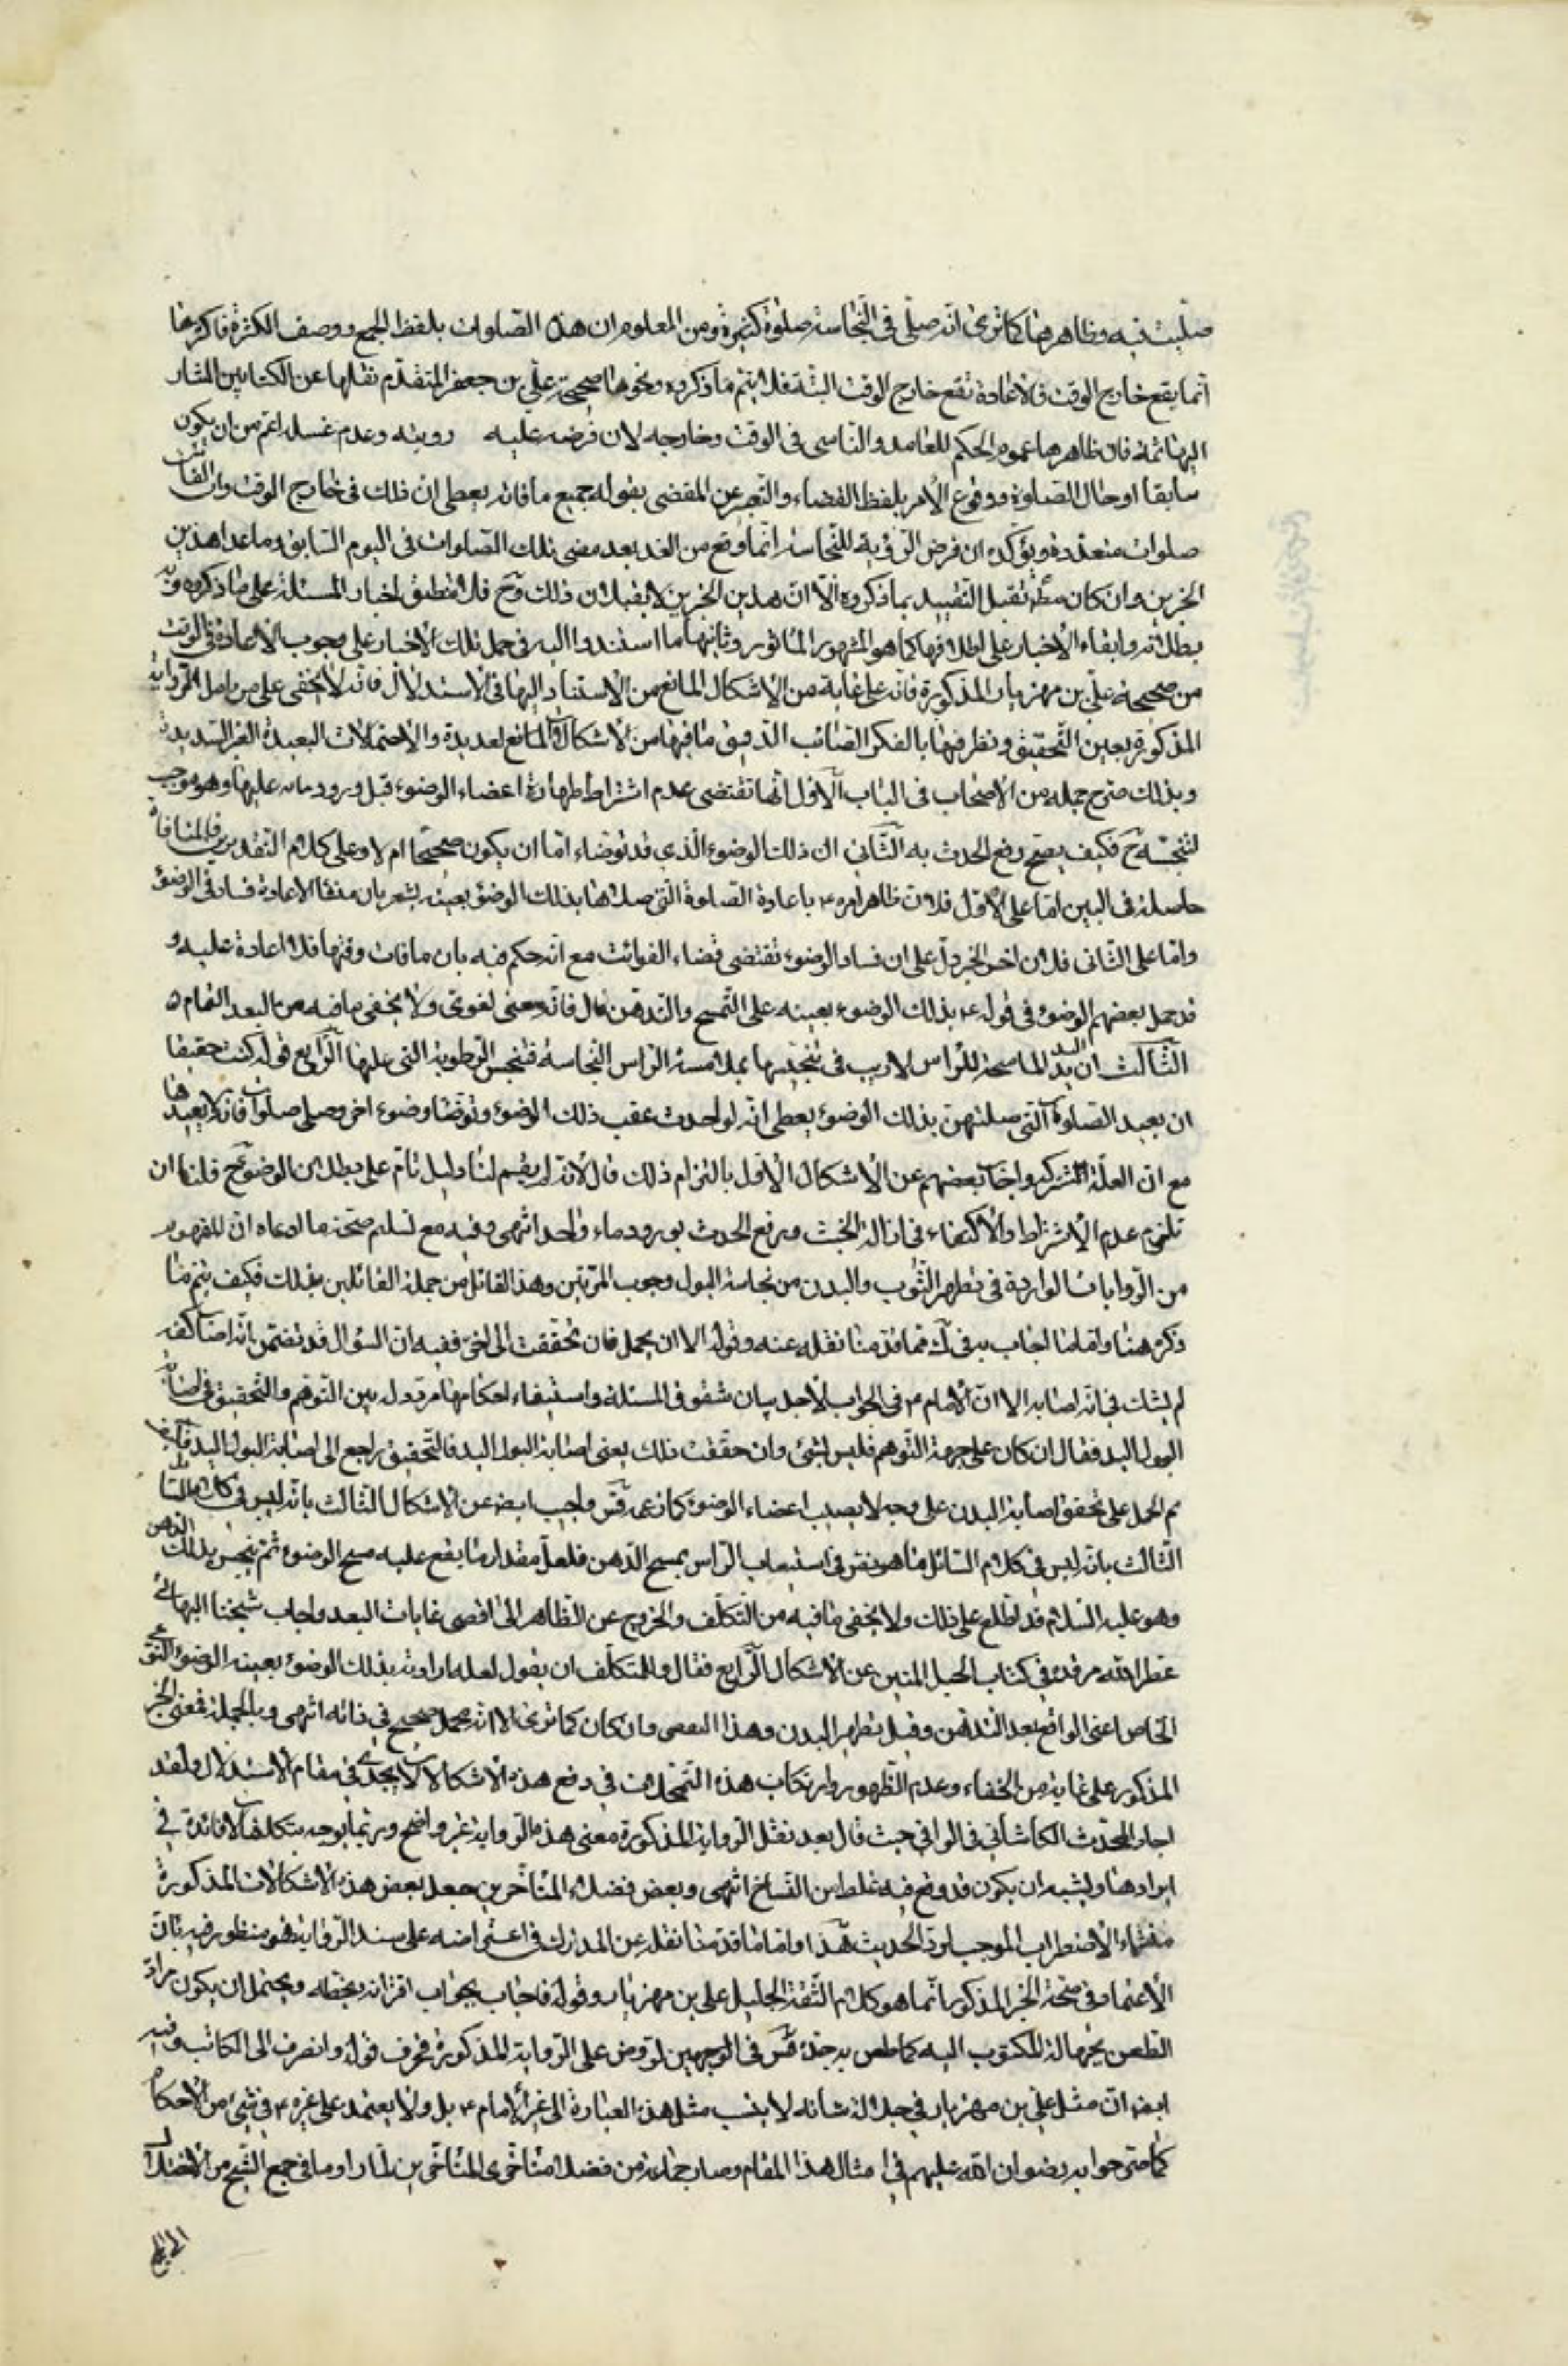 صليت فيه وظاهرها كما ترى انه صلى في النجاسة صلوة كثيرة ومن المعلوم ان هذه الصلوات بلفظ الجمع ووصف الكثرة فاكثرها
انما يقع خارج الوقت فالاعادة تقع خارج الوقت البتة فلا يتم ما ذكروه ونحوها صحيحة علي بن جعفر المتقدم نقلها عن الكتابين المشار
اليهما ثمة فان ظاهرها عموم الحكم للعامد والناسي في الوقت وخارجه لان فرضه عليه رويته وعدم غسله اعم من ان يكون
سابقا او حال الصلوة ووقوع الأمر بلفظ القضاء والتعبير عن المقضي بقوله جميع ما فاته يعطي ان ذلك في خارج الوقت وان الفائت
صلوات متعددة ويؤكده ان فرض الرؤية للنجاسة انما وقع من الغد بعد مضي تلك الصلوات في اليوم السابق وما عدا هذين
الخبرين وان كان مط تقبل التقييد بما ذكروه الا ان هذين الخبرين لا يقبلان ذلك وح فلا تنطبق اخبار المسئلة على ما ذكروه
بطلانه وابقاء الأخبار على اطلاقها كما هو المشهور المأثور وثانيهما ما استندوا اليه في حمل تلك الأخبار على وجوب الاعادة في الوقت
من صحيحة علي بن مهزيار المذكورة فانه على غاية من الاشكال المانع من الاستناد اليها في الاستدلال فانه لا يخفى على من تأمل الرواية
المذكورة بعين التحقيق ونظر فيها بالفكر الصائب الدقيق ما فيها من الاشكال والموانع لعديدة والاحتمالات البعيدة الغير السديدة
وبذلك صرح جملة من الأصحاب في الباب الاول انها تقتضي عدم اشتراط طهارة اعضاء الوضوء قبل ورود مائه عليها وهو موجب
لتنجسه ح فكيف يصح رفع الحدث به الثاني ان ذلك الوضوء الذي قد توضاء اما ان يكون صحيحا ام لا وعلى كلا التقديرين فالمنافاة
حاصلة في البين اما على الاول فلان ظاهر امره ع باعادة الصلوة التي صلاها بذلك الوضوء بعينه يشعر بان منشأ الاعادة فساد في الوضوء
واما على الثاني فلان اخر الخبر دل على ان فساد الوضوء تقتضي قضاء الفوائت مع انه حكم فيه بان ما فات وقتها فلا اعادة عليه و
قد حمل بعضهم الوضوء في قوله ع بذلك الوضوء بعينه على التمسح والتدهن قال فانه معنى لغوي ولا يخفى ما فيه من البعد التمام
الثالث ان اليد الماسحة للراس لا ريب في تنجيسها بملامسة الراس النجاسة فتنجس الرطوبة التي عليها الرابع قوله كنت حقيقا
ان يعيد الصلوة التي صليتهن بذلك الوضوء يعطي انه لو احدث عقب ذلك الوضوء وتوضأ وضوء اخر وصلى صلوات فانه لا يعيدها
مع ان العلة مشتركة واجاب بعضهم عن الاشكال الاول بالتزام ذلك قال لانه لم يقم لنا دليل تام على بطلان الوضوء ح قلنا ان
نلتزم عدم الاشتراط والاكتفاء في ازالة الخبث ورفع الحدث بورود ماء واحد انتهى وفيه مع تسليم صحة ما ادعاه ان المفهوم
من الروايات الواردة في تطهير الثوب والبدن من نجاسة البول وجوب المرتين وهذا القائل من جملة القائلين بذلك فكيف يتم ما
ذكره هنا واما ما اجاب به في ك فما قدمنا نقله عنه وقوله الا ان يحمل فان تحققت الى اخره ففيه ان السؤال قد تضمن انه اصاب كفه
لم يشك في انه اصابه الا ان الأمام ع في الجواب لأجل بيان شقوق المسئلة واستيفاء احكامها مردد له بين التوهم والتحقيق في اصابة
البول اليد فقال ان كان على جهة التوهم فليس بشئ وان حققت ذلك يعني اصابة البول اليد فالتحقيق راجع الى اصابة البول اليد فكيف
تم الحمل على تحقق اصابة البدن على وجه لا يصيب اعضاء الوضوء كما زعمه قس واجيب ايض عن الاشكال الثالث بانه ليس في كلام السائل
الثالث بانه ليس في كلام السائل ما هو نص في استيعاب الراس بمسح الدهن فلعل مقدار ما يقع عليه مسح الوضوء ثم ينجس بذلك الدهن
وهو عليه السلام قد اطلع على ذلك ولا يخفى ما فيه من التكلف والخروج عن الظاهر الى اقصى غايات البعد واجاب شيخنا البهائي
عطر الله مرقده في كتاب الحبل المتين عن الاشكال الرابع فقال والمتكلف ان يقول لعله اراد بذلك الوضوء بعينه الوضوء
الخاص اعني الواقع بعد التدهن وقبل تطهير البدن وهذا المعنى وان كان كما ترى الا انه محمل صحيح في ذاته انتهى وبالجملة فمعنى الخبر
المذكور على غاية من الخفاء وعدم الظهور وارتكاب هذه التمحلات في دفع هذه الاشكالات لا يجدي في مقام الاستدلال ولقد
اجاد المحدث الكاشاني في الوافي حيث قال بعد نقل الرواية المذكورة معنى هذه الرواية غير واضح وربما يوجه بتكلفات لا فائدة في
ايرادها ويشبه ان يكون قد وقع فيه غلط من النساخ انتهى وبعض فضلاء المتأخرين جعل بعض هذه الاشكالات المذكورة
منشاء الأضطراب الموجب لرد الحديث هذا واما ما قدمنا نقله عن المدارك في اعتراضه على سند الرواية فهو منظور فيه بان
الأعتماد في صحة الخبر المذكور انما هو كلام الثقة الجليل علي بن مهزيار وقوله فاجاب بجواب اقرأته بخطه ويحتمل ان يكون مراد
الطعن بجهالة المكتوب اليه كما طعن به جده قس في الوجهين لو عرض على الرواية المذكورة فحرف قوله وانصرف الى الكاتب وفيه
ايض ان مثل علي بن مهزيار في جلالة شانه لا ينسب مثل هذه العبارة الى غير الأمام ع بل ولا يعتمد على غيره ع في شئ من الأحكام
كما صرحوا به رضوان الله عليهم في امثال هذا المقام وصار جماعة من فضلاء متأخري المتأخرين لما راوا ما في جمع الشيخ من الاختلال